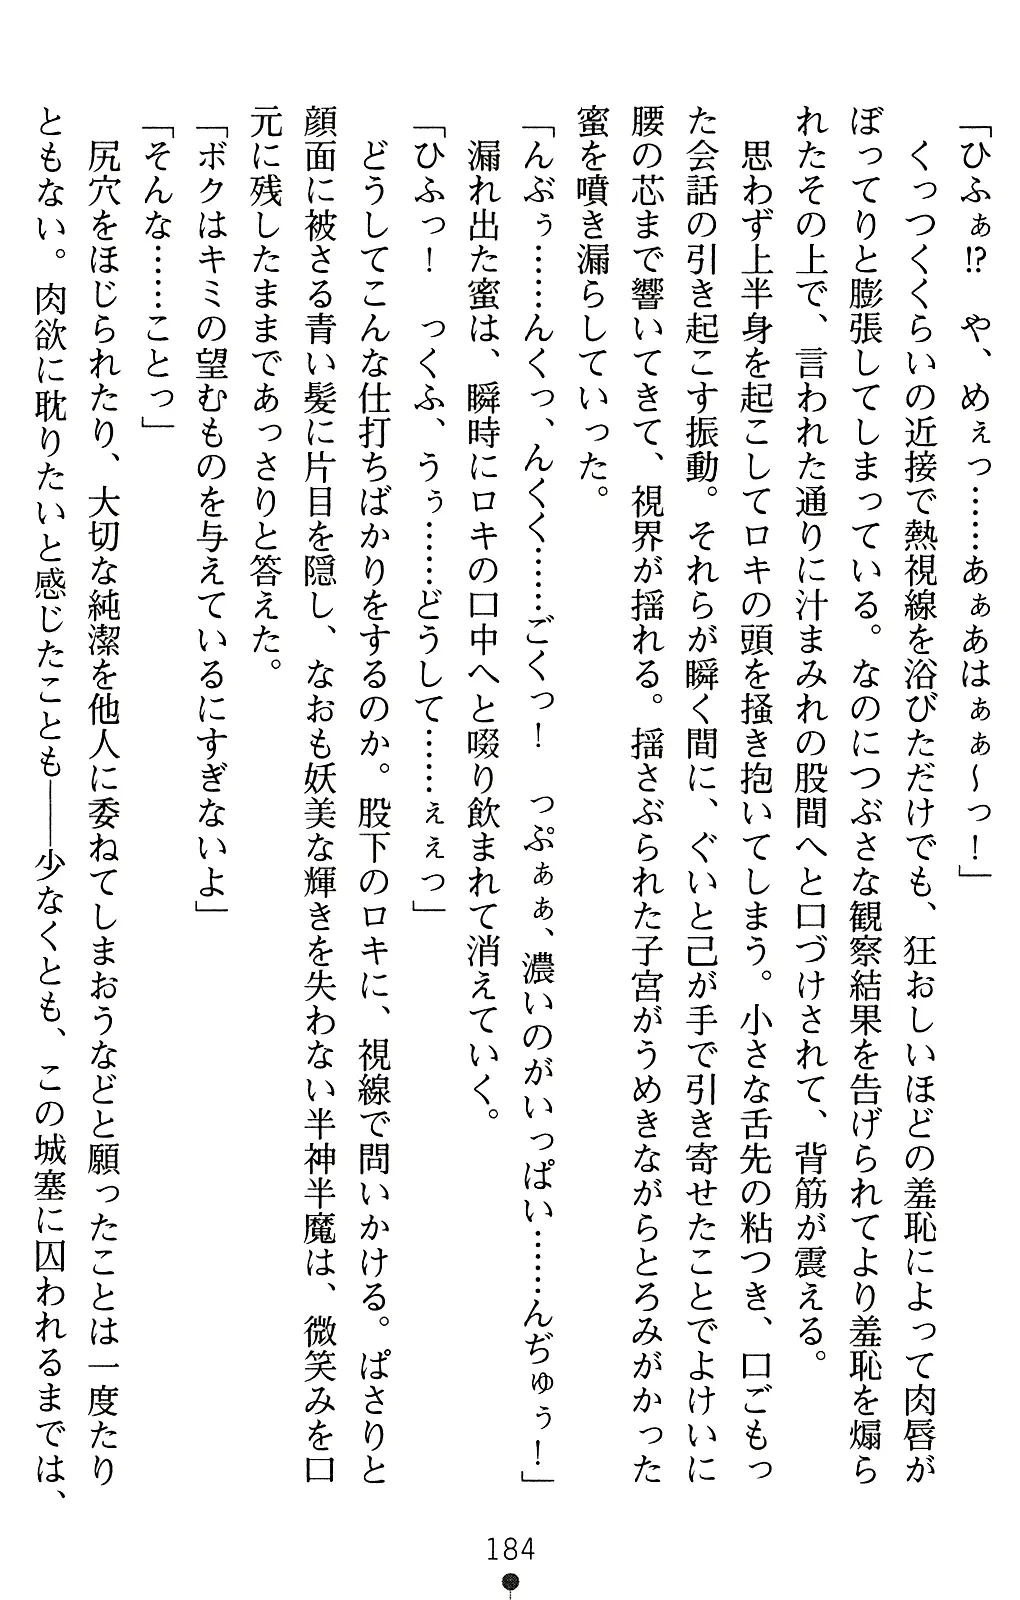 「ひふぁ!?　や、めぇっ……あぁあはぁぁ～っ！」
　くっつくくらいの近接で熱視線を浴びただけでも、狂おしいほどの羞恥によって肉唇が
ぼってりと膨張してしまっている。なのにつぶさな観察結果を告げられてより羞恥を煽ら
れたその上で、言われた通りに汁まみれの股間へと口づけされて、背筋が震える。
　思わず上半身を起こしてロキの頭を掻き抱いてしまう。小さな舌先の粘つき、口ごもっ
た会話の引き起こす振動。それらが瞬く間に、ぐいと己が手で引き寄せたことでよけいに
腰の芯まで響いてきて、視界が揺れる。揺さぶられた子宮がうめきながらとろみがかった
蜜を噴き漏らしていった。
「んぶぅ……んくっ、んくく……ごくっ！　っぷぁぁ、濃いのがいっぱい……んぢゅぅ！」
　漏れ出た蜜は、瞬時にロキの口中へと啜り飲まれて消えていく。
「ひふっ！　っくふ、うぅ……どうして……ぇぇっ」
　どうしてこんな仕打ちばかりをするのか。股下のロキに、視線で問いかける。ぱさりと
顔面に被さる青い髪に片目を隠し、なおも妖美な輝きを失わない半神半魔は、微笑みを口
元に残したままであっさりと答えた。
「ボクはキミの望むものを与えているにすぎないよ」
「そんな……ことっ」
　尻穴をほじられたり、大切な純潔を他人に委ねてしまおうなどと願ったことは一度たり
ともない。肉欲に耽りたいと感じたことも――少なくとも、この城塞に囚われるまでは、
184